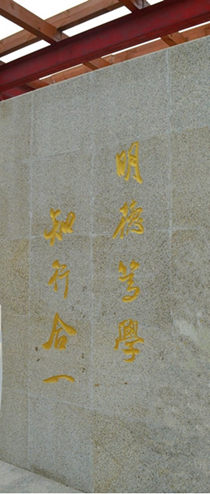 明德篤學
知行合一